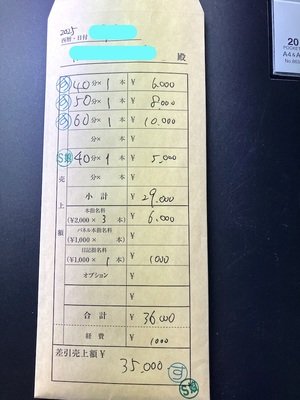 2025
西暦・日付
殿
40分×1本 ¥ 6.000
50分×1本 ¥ 8000
60分×1本 ¥ 10,000
分× 本 ¥
S割 40分×1本 ¥ 5,000
分× 本 ¥
売上額
小計 ¥ 29,000
本指名料
(¥2,000× 3 本) ¥ 6,000
パネル本指名料
(¥1,000× 本) ¥
日記指名料
(¥1,000× 1 本) ¥ 1000
オプション ¥
¥
合計 ¥ 36000
経費 ¥ 1000
差引売上額¥ 35.000
20
POCKET
A4&A
No.865